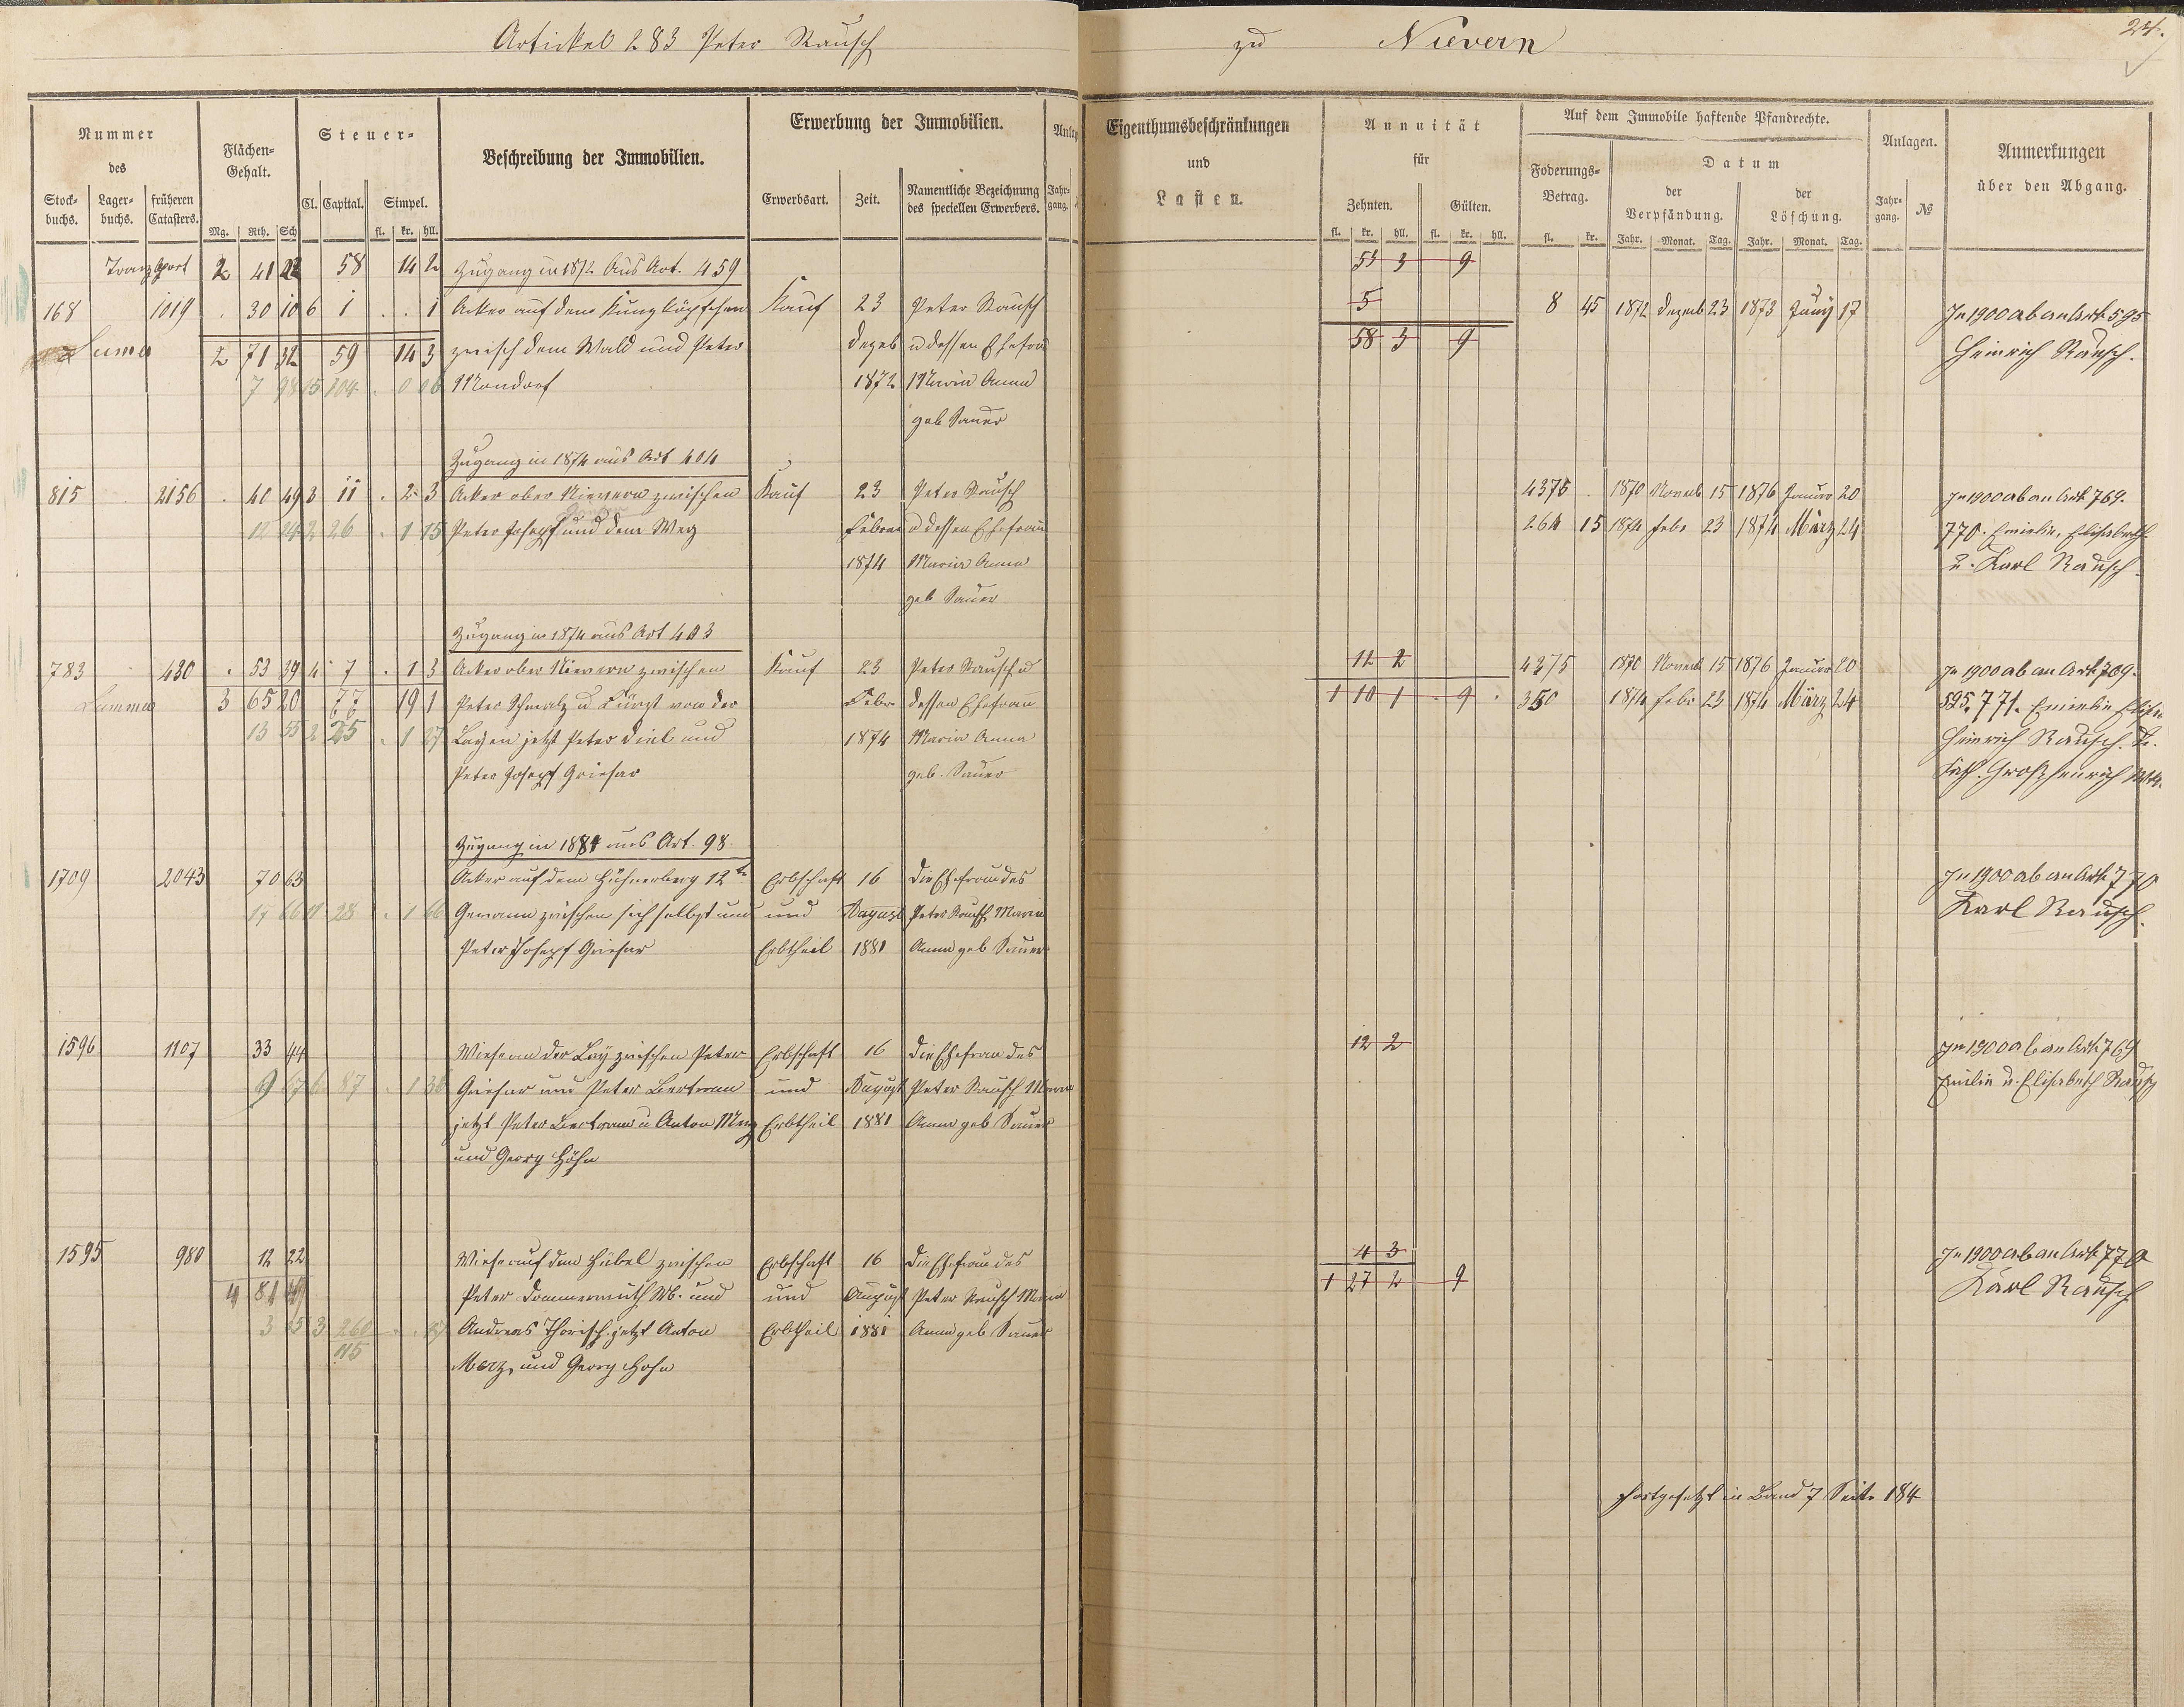 Artickel 283 Peter Rausch
zu Nievern
24.
Nummer
des
Stock-
buchs.
Lager-
buchs.
früheren
Catasters.
Flächen-
Gehalt.
Mg. Rth. Sch
Steuer-
Cl. Capital. Simpel.
fl. kr. hll.
Beschreibung der Immobilien.
Erwerbung der Immobilien.
Erwerbsart. Zeit.
Namentliche Bezeichnung
des speciellen Erwerbers.
Jahr-
gang.
Eigenthumsbeschränkungen
und
Lasten.
Annuität
für
Zehnten. Gülten.
fl. kr. hll. fl. kr. hll.
Auf dem Immobile haftende Pfandrechte.
Foderungs-
Betrag.
fl. kr.
Datum
der
Verpfändung.
der
Löschung.
Jahr. Monat. Tag. Jahr. Monat. Tag.
Anlagen.
Jahr-
gang. №
Anmerkungen
über den Abgang.
Transport 2 41 22 58 14 2 Zugang in 1872 Aus Art. 459
53 3 9
168 1019 . 30 10 6 1 . . 1 Acker auf dem Kunzköpfchen Kauf 23 Peter Rausch
5 8 45 1872 Dezmb 23 1873 Juny 17 In 1900 ab an Art 595
Suma 2 71 32 59 14 3 zwisch dem Wald und Peter Dezeb u dessen Ehefrau
58 3 9 Heinrich Rausch.
7 98 15 104 . 0 06 Mondorf 1872 Maria Anna
geb Sauer
Zugang in 1874 aus Art 404
815 2156 . 40 49 3 11 . 2 3 Acker ober Nievern zwischen Kauf 23 Peter Rausch
4375 . 1870 Novmb 15 1876 Januar 20 In 1900 ab an Art 769.
2 26 . 1 15 Peter Joseph und dem Weg Febru u dessen Ehefrau
264 15 1874 Febr 23 1874 März 24 770. Emielie, Elisabeth
1874 Maria Anna
u. Karl Rausch.
geb Sauer
Zugang in 1874 aus Art 403
783 430 . 53 39 4 7 . 1 3 Acker ober Nievern zwischen Kauf 23 Peter Rausch u
12 2 4375 1870 Novmb 15 1876 Januar 20 In 1900 ab an Art 769.
Summa 3 65 20 77 19 1 Peter Schmalz u Fürst von der Febr dessen Ehefrau
1 10 1 . 9 . 350 1874 Febr 23 1874 März 24 595. 771. Emielie
13 35 2 25 . 1 27 Layen jetzt Peter Diel und 1874 Maria Anna
Heinrich Rausch. u.
Peter Joseph Griesar geb. Sauer
Kath. Großhenrich
Zugang in 1881 aus Art. 98.
1709 2043 70 63 Acker auf dem Hühnerberg 12te Erbschaft 16 die Ehefrau des
In 1900 ab an Art 770
17 66 11 28 . 1 66 Gewann zwischen sich selbst und und August Peter Rausch Maria
Karl Rausch.
Peter Joseph Griesar Erbtheil 1881 Anna geb Sauer
1596 1107 33 44 Wiese an der Lay zwischen Peter Erbschaft 16 die Ehefrau des
12 2 In 1900 ab an Art 769
Griesar und Peter Bertram und August Peter Rausch Maria
Emilie u. Elisabeth Rausch
jetzt Peter Bertram u Anton Merz Erbtheil 1881 Anna geb Sauer
und Georg Höhn
1595 980 12 22 Wiese auf dem Hübel zwischen Erbschaft 16 die Ehefrau des
4 3 In 1900 ab an Art 770
4 81 Peter Dommermuth Wb. und und August Peter Rausch Maria
1 27 2 9 Karl Rausch
3 260 Andreas Thorisch jetzt Anton Erbtheil 1881 Anna geb Sauer
115 Merz, und Georg Hohn
Fortgesetzt in Band 7 Seite 184